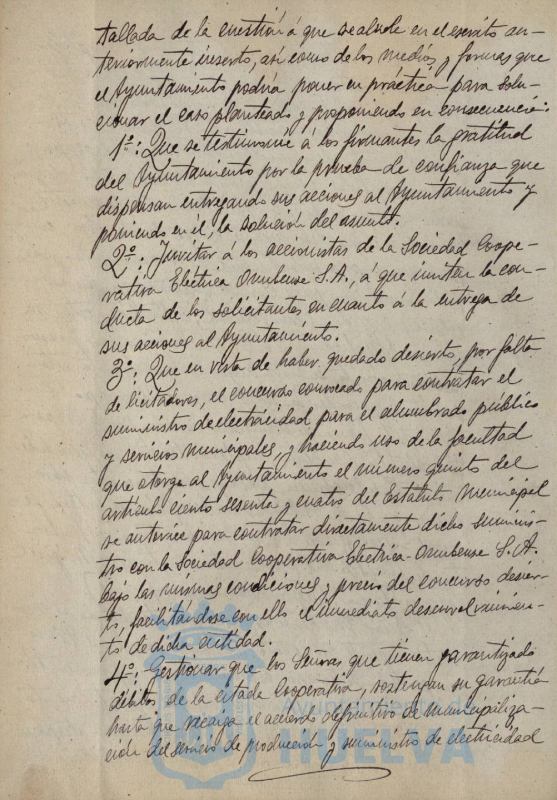 tallada de la cuestión á que se alude en el escrito an-
teriormente inserto, así como de los medios y formas que
el Ayuntamiento podría poner en práctica para solu-
cionar el caso planteado y proponiendo en consecuencia:
1º: Que se testimonie á los firmantes la gratitud
del Ayuntamiento por la prueba de confianza que
dispensan entregando sus acciones al Ayuntamiento y
poniendo en él, la solución del asunto.
2º: Invitar á los accionistas de la Sociedad Coope-
rativa Electrica Onubense S.A., á que imitan la con-
ducta de los solicitantes en cuanto á la entrega de
sus acciones al Ayuntamiento.
3º: Que en vista de haber quedado desierto, por falta
de licitadores, el concurso convocado para contratar el
suministro de electricidad para el alumbrado público
y servicios municipales, y haciendo uso de la facultad
que otorga al Ayuntamiento el número quinto del
artículo ciento sesenta y cuatro del Estatuto Municipal
se autorice para contratar directamente dicho suminis-
tro con la Sociedad Cooperativa Electrica-Onubense S.A.
bajo las mismas condiciones y precio del concurso desier-
to, facilitándose con ello el inmediato desenvolvimien-
to de dicha entidad.
4º: Gestionar que los Señores que tienen garantizado
débitos de la citada Cooperativa, sostengan su garantía
hasta que recaiga el acuerdo definitivo de municipaliza-
ción del servicio de producción y suministro de electricidad
Ayuntamiento de
HUELVA